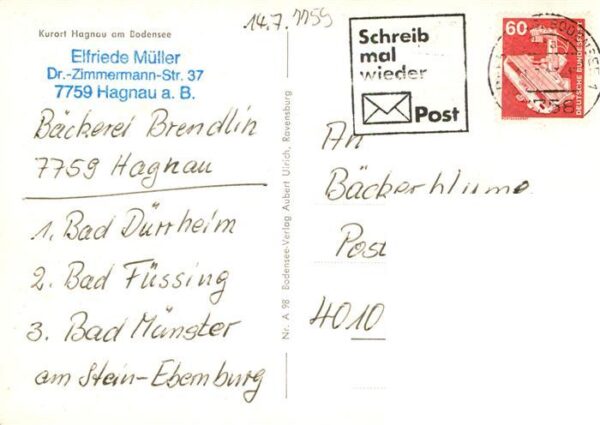 Kurort Hagnau am Bodensee
Elfriede Müller
Dr.-Zimmermann-Str. 37
7759 Hagnau a. B.
Bäckerei Brendlin
7759 Hagnau
1. Bad Dürrheim
2. Bad Füssing
3. Bad Münster
am Stein-Ebernburg
Nr. A 98 Bodensee-Verlag Aubert Ulrich, Ravensburg
14.7.
Schreib
mal
wieder
Post
60
DEUTSCHE BUNDESPOST
An
Bäckerblume
Post
4010